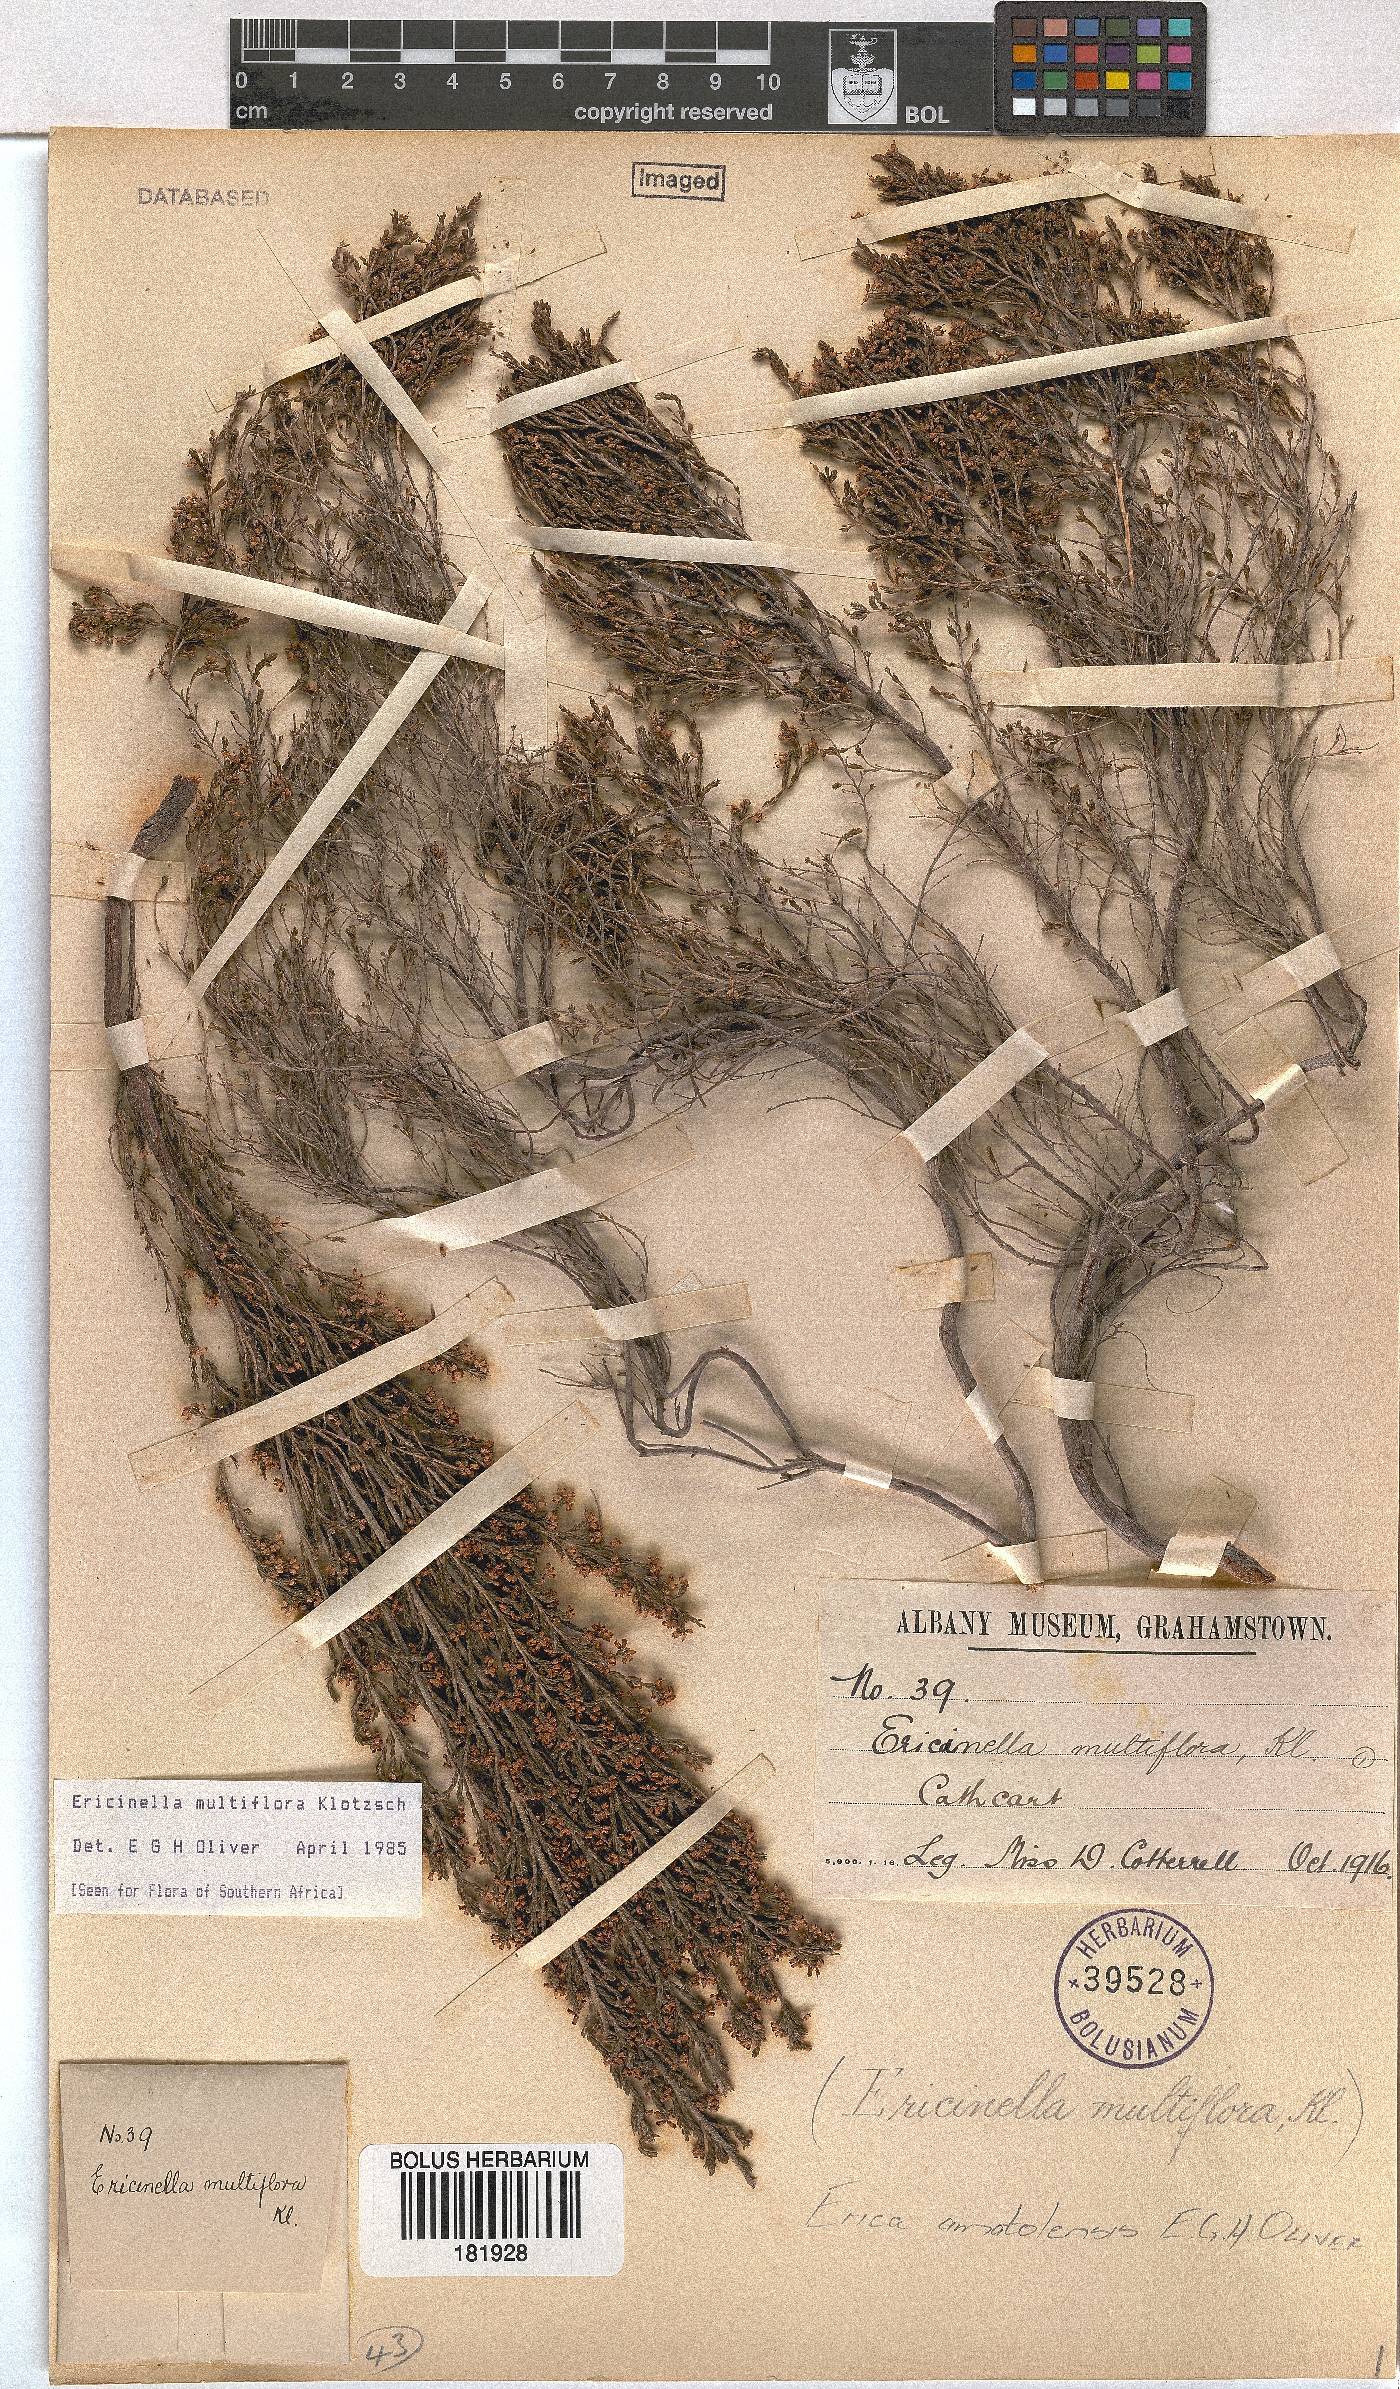 0 1 2 3 4 5 6 7 8 9 10
cm copyright reserved BOL
DATABASED
Imaged
ALBANY MUSEUM, GRAHAMSTOWN.
No. 39.
Ericinella multiflora, Kl.
Cathcart
5,000. 1. 16. Leg. Miss D. Cotterrell Oct. 1916.
Ericinella multiflora Klotzsch
Det. E G H Oliver April 1985
[Seen for Flora of Southern Africa]
HERBARIUM
*39528*
BOLUSIANUM
(Ericinella multiflora, Kl.)
Erica amatolensis E G H OLIVER
No. 39
Ericinella multiflora
Kl.
BOLUS HERBARIUM
181928
43
1